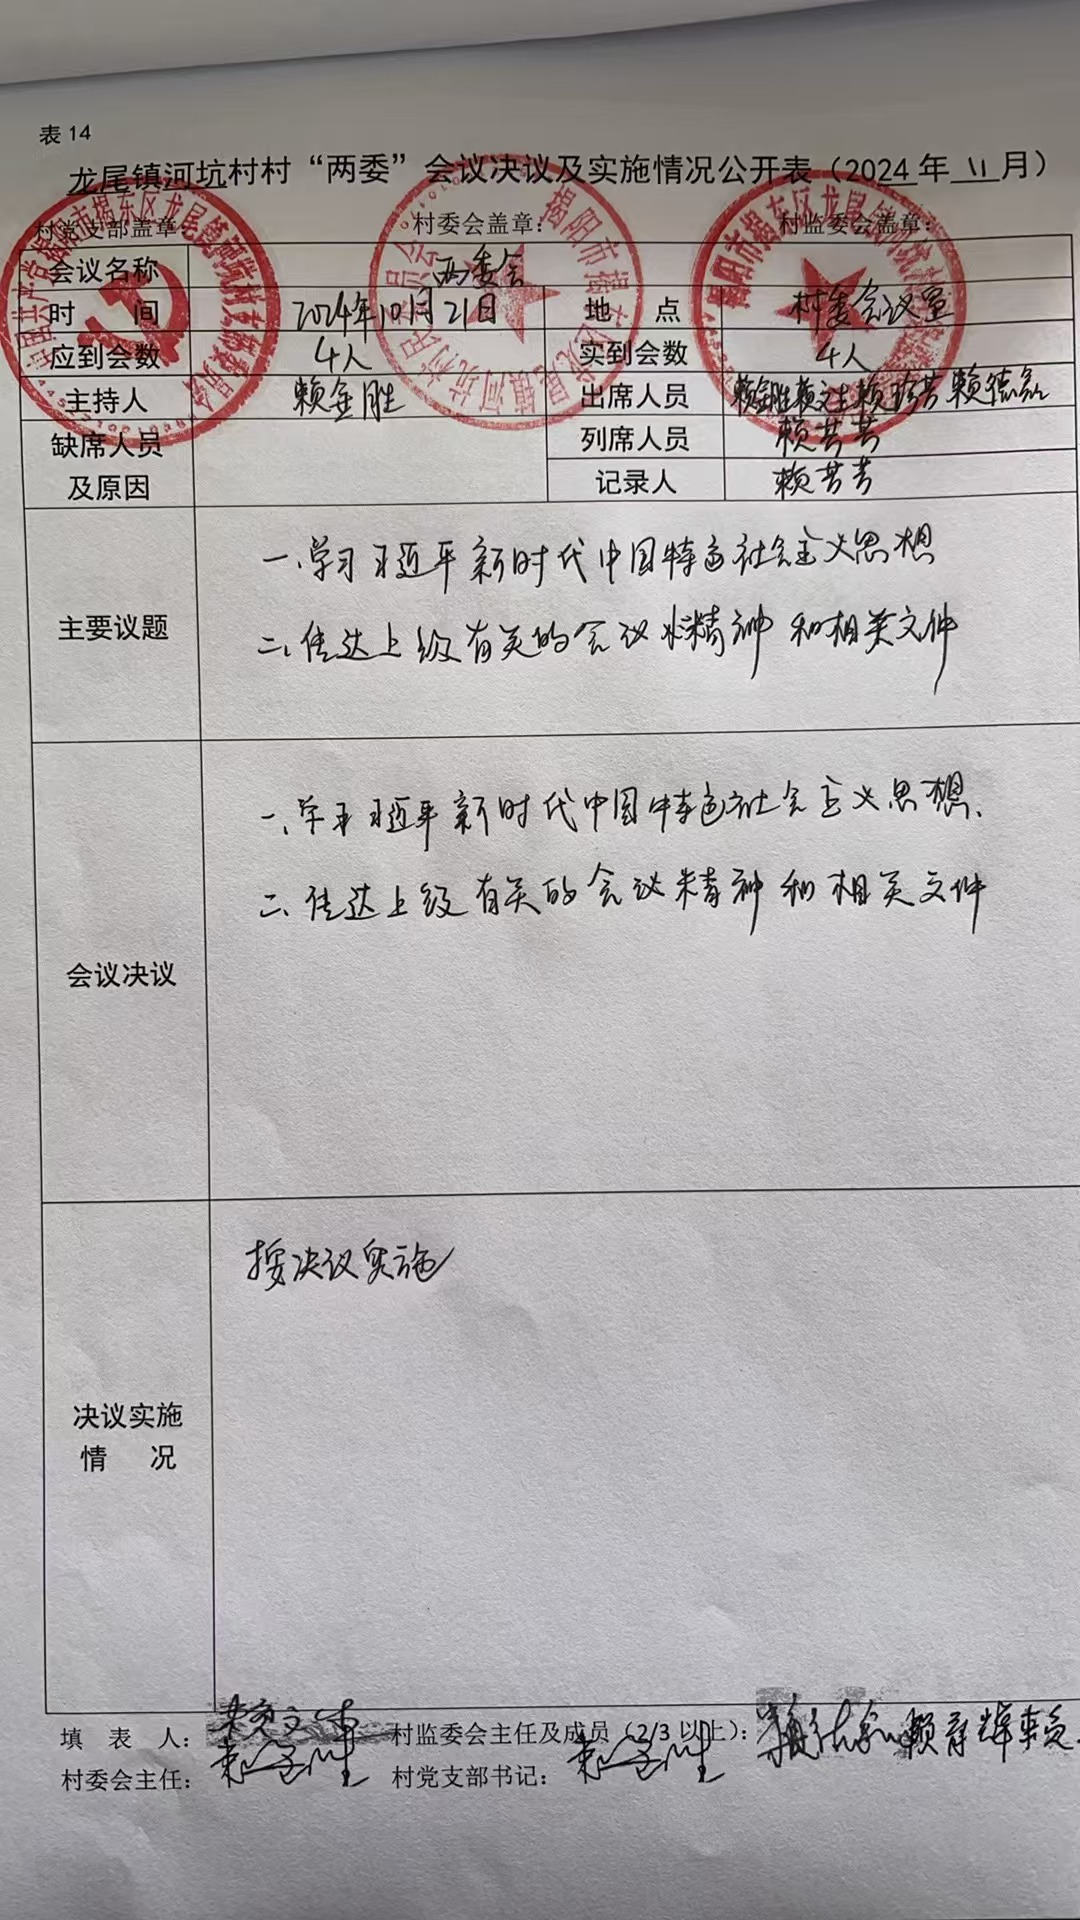 表 14
龙尾镇河坑村村“两委”会议决议及实施情况公开表（2024年 11 月）
村党支部盖章： 村委会盖章： 村监委会盖章：
会议名称 两委会
时 间 2024年10月21日 地 点 村委会议室
应到会数 4人 实到会数 4人
主持人 赖金胜 出席人员 赖金胜 赖文生 赖 赖德
缺席人员及原因 列席人员 赖芳芳
记录人 赖芳芳
主要议题
一、学习习近平新时代中国特色社会主义思想
二、传达上级有关的会议精神和相关文件
会议决议
一、学习习近平新时代中国特色社会主义思想、
二、传达上级有关的会议精神和相关文件
决议实施情 况
按决议实施
填 表 人： 赖文 村监委会主任及成员（2/3 以上）： 赖
村委会主任： 村党支部书记：